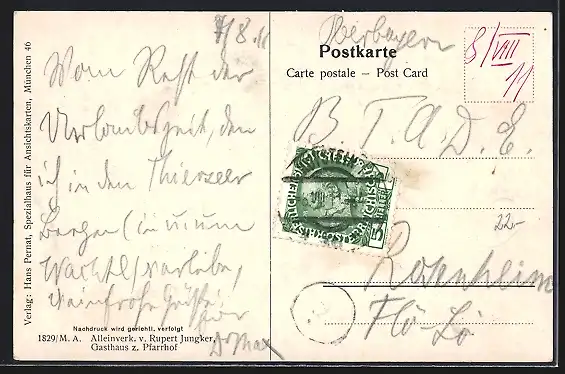 7/8. 11
Vom Rest der
Urlaubszeit, den
ich in den Thierseer
Bergen (in u. um
Wachtl) verlebe,
frohe Grüße
Dr Max
Verlag: Hans Pernat, Spezialhaus für Ansichtskarten, München 46
Nachdruck wird gerichtl. verfolgt
1829/M. A. Alleinverk. v. Rupert Jungker,
Gasthaus z. Pfarrhof
Oberbayern
Postkarte
Carte postale – Post Card
8/VIII
11
B. T. A. D. E.
5 HELLER
22-
Rosenheim
Flö-Lö